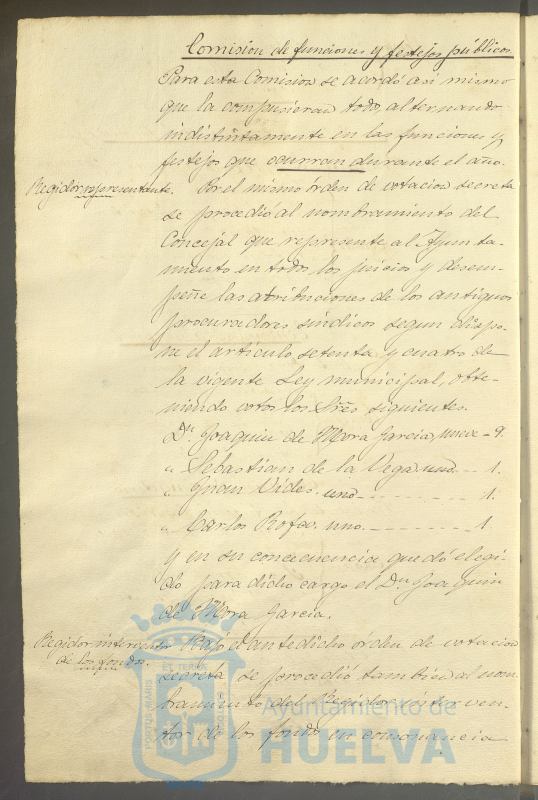 Comision de funciones y festejos públicos
Para esta Comision se acordó asi mismo
que la compusieran todos, alternando
indistintamente en las funciones y
festejos que ocurran durante el año.
Regidor representante.
Por el mismo órden de votacion secreta
se procedió al nombramiento del
Concejal que represente al Ayunta-
miento en todos los juicios y desem-
peñe las atribuciones de los antiguos
procuradores síndicos segun dispo-
ne el artículo setenta y cuatro de
la vigente Ley municipal, obte-
niendo votos los Sres siguientes.
Dn Joaquin de Mora Garcia, nueve - 9.
" Sebastian de la Vega. uno. - - 1.
" Juan Vides. uno - - - - - - - 1.
" Carlos Rofa. uno. - - - - - - 1.
y en su consecuencia quedó elegi-
do para dicho cargo el Dn Joaquin
de Mora Garcia.
Regidor interventor
de los fondos.
Bajo el antedicho órden de votacion
secreta se procedió tambien al nom-
bramiento del Regidor interven-
tor de los fondos en consonancia
PORTUS MARIS
ET TERRÆ
CUSTODIA
Ayuntamiento de
HUELVA